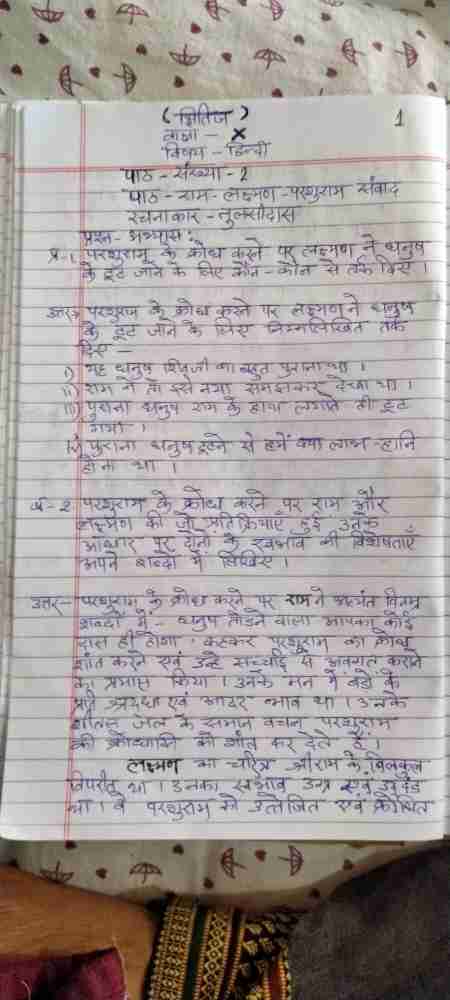 (क्षितिज)
1
कक्षा - X
विषय - हिन्दी
पाठ - संख्या - 2
पाठ - राम - लक्ष्मण - परशुराम संवाद
रचनाकार - तुलसीदास
प्रश्न - अभ्यास :
प्र-1. परशुराम के क्रोध करने पर लक्ष्मण ने धनुष
के टूट जाने के लिए कौन-कौन से तर्क दिए।
उत्तर- परशुराम के क्रोध करने पर लक्ष्मण ने धनुष
के टूट जाने के लिए निम्नलिखित तर्क
दिए —
i) यह धनुष शिवजी का बहुत पुराना था।
ii) राम ने तो इसे नया समझकर देखा था।
iii) पुराना धनुष राम के हाथ लगाते ही टूट
गया।
iv) पुराना धनुष टूटने से हमें क्या लाभ-हानि
होना था।
प्र-2. परशुराम के क्रोध करने पर राम और
लक्ष्मण की जो प्रतिक्रियाएँ हुई उनके
आधार पर दोनों के स्वभाव की विशेषताएँ
अपने शब्दों में लिखिए।
उत्तर- परशुराम के क्रोध करने पर राम ने अत्यंत विनम्र
शब्दों में - धनुष तोड़ने वाला आपका कोई
दास ही होगा। कहकर परशुराम का क्रोध
शांत करने एवं उन्हें सच्चाई से अवगत कराने
का प्रयास किया। उनके मन में बड़ों के
प्रति श्रद्धा एवं आदर भाव था। उनके
शीतल जल के समान वचन परशुराम
की क्रोधाग्नि को शांत कर देते हैं।
लक्ष्मण का चरित्र श्रीराम के बिलकुल
विपरीत था। उनका स्वभाव उग्र एवं उद्दंड
था। वे परशुराम को उत्तेजित एवं क्रोधित